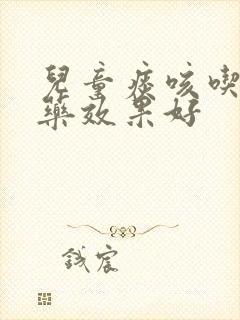 兒童痰咳喫
藥效果好
宸